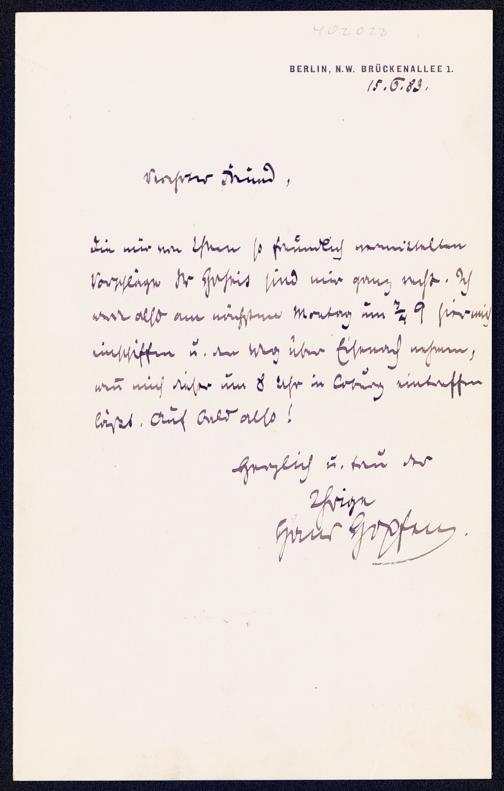 402023
BERLIN, N.W. BRÜCKENALLEE 1.
15.6.83.
Verehrter Freund,
Die mir von Ihnen so freundlich vermittelten
Vorschläge der sind mir ganz recht. Ich
werde also am nächsten Montag um 3/4 9 hier mich
einschiffen u. den Weg über Eisenach nehmen,
mich dieser um 8 Uhr in Coburg eintreffen
läßt. Auf bald also!
Herzlich u. treu der
Ihrige
Hans Hopfen.